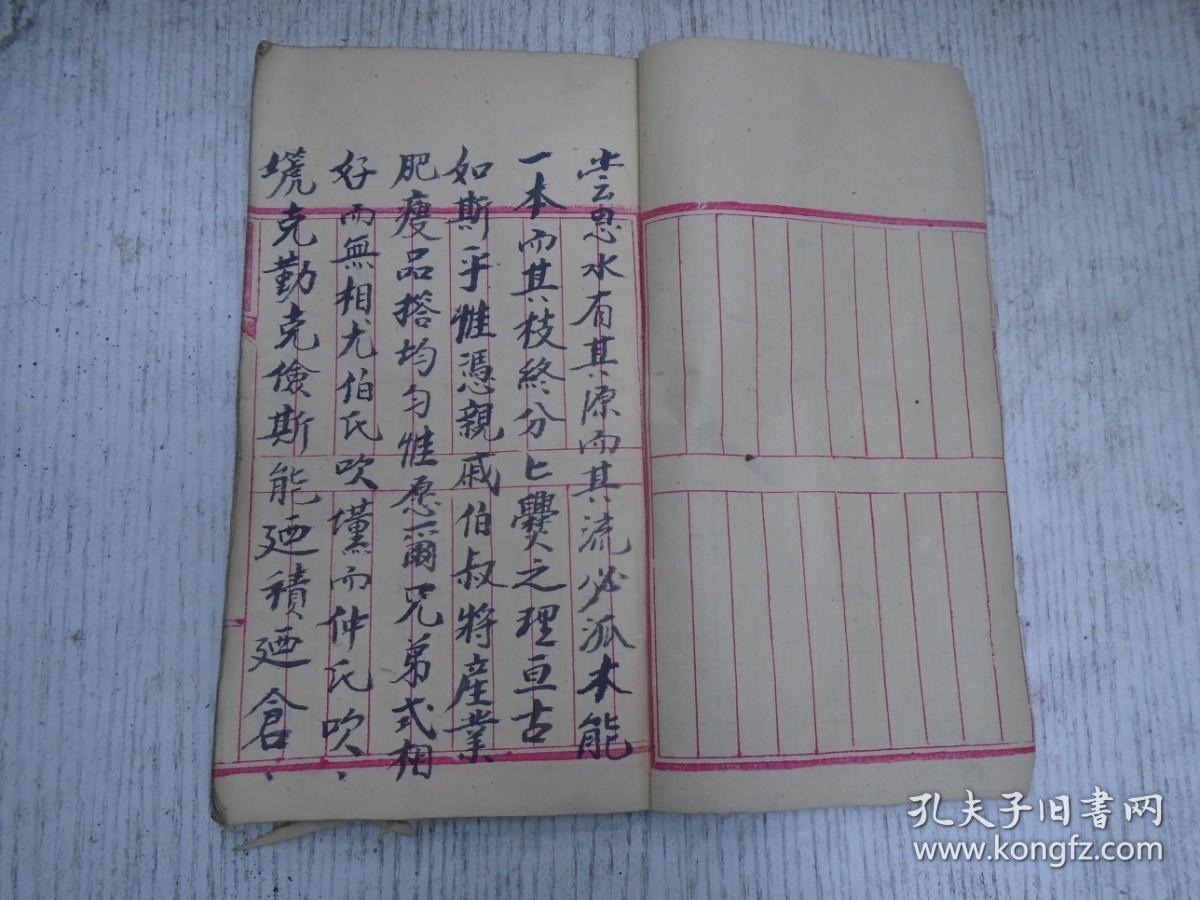 尝思水有其源而其流必派本能
一本而其枝終分亡爨之理亘古
如斯乎惟憑親戚伯叔將産業
肥瘦品搭均匀惟愿爾兄弟式相
好而無相尤伯氏吹壎而仲氏吹
克勤克儉斯能廼積廼倉
孔夫子旧书网
www.kongfz.com